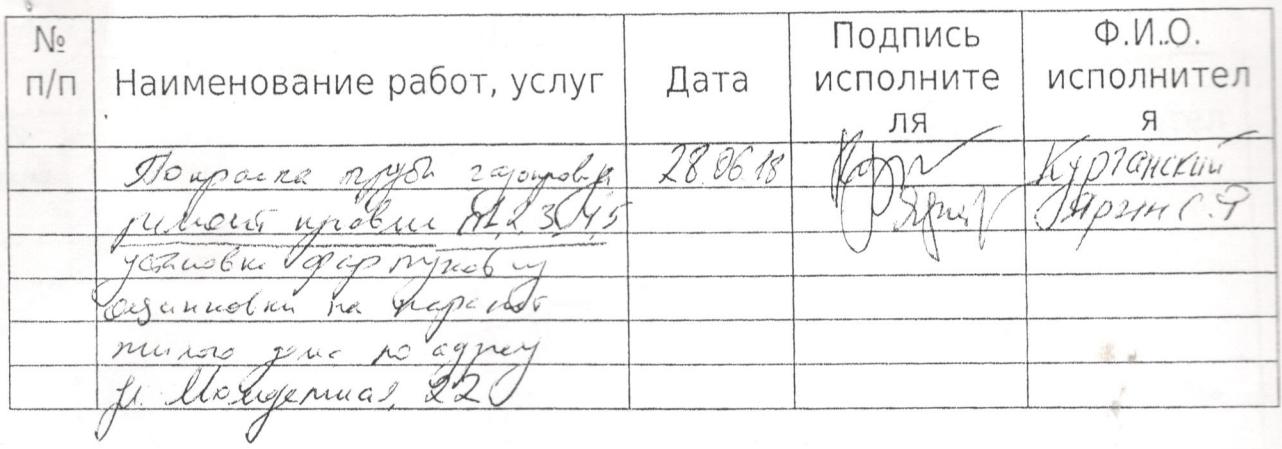 № п/п
Наименование работ, услуг
Дата
Подпись исполните ля
Ф.И..О. исполнител я
Покраска трубы газопровода 28.06.18 Курганский
ремонт кровли 1,2,3,4,5 Ярин С.Я
установка фартуков из
оцинковки на парапет
жилого дома по адресу
ул. Молодежная, 22